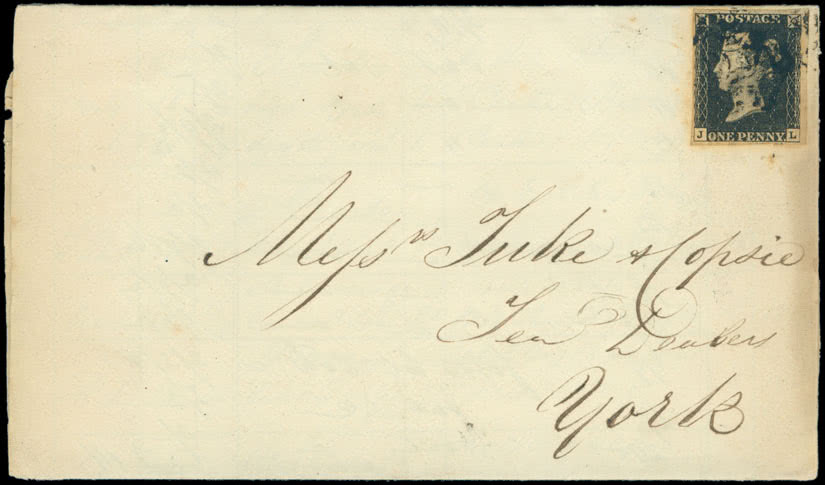 POSTAGE
J ONE PENNY L
Messrs Tuke & Copsie
Tea Dealers
York